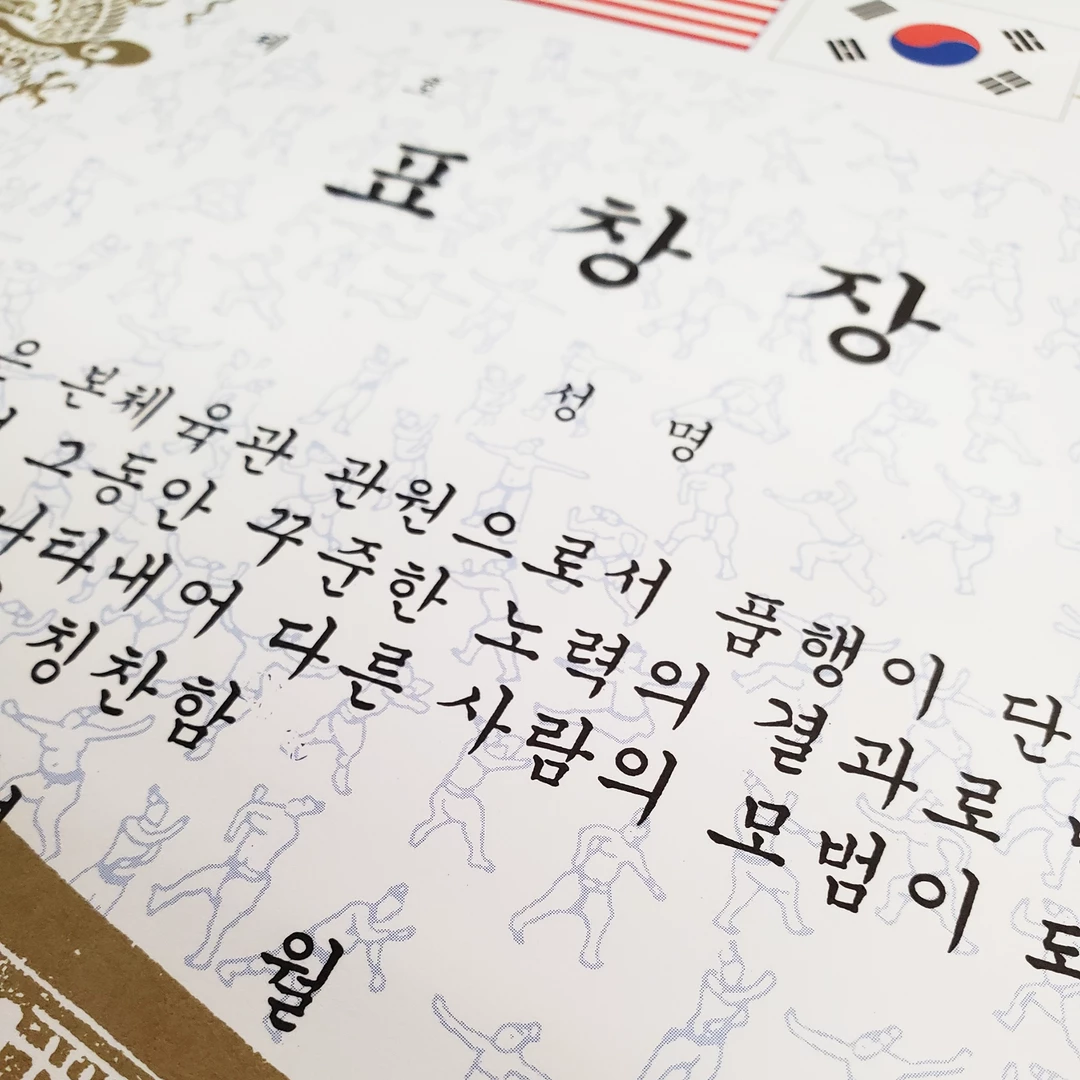 제 호
표 창 장
성 명
은 본체육관 관원으로서 품행이 단
그동안 꾸준한 노력의 결과로
나타내어 다른 사람의 모범이 되
칭찬함
월